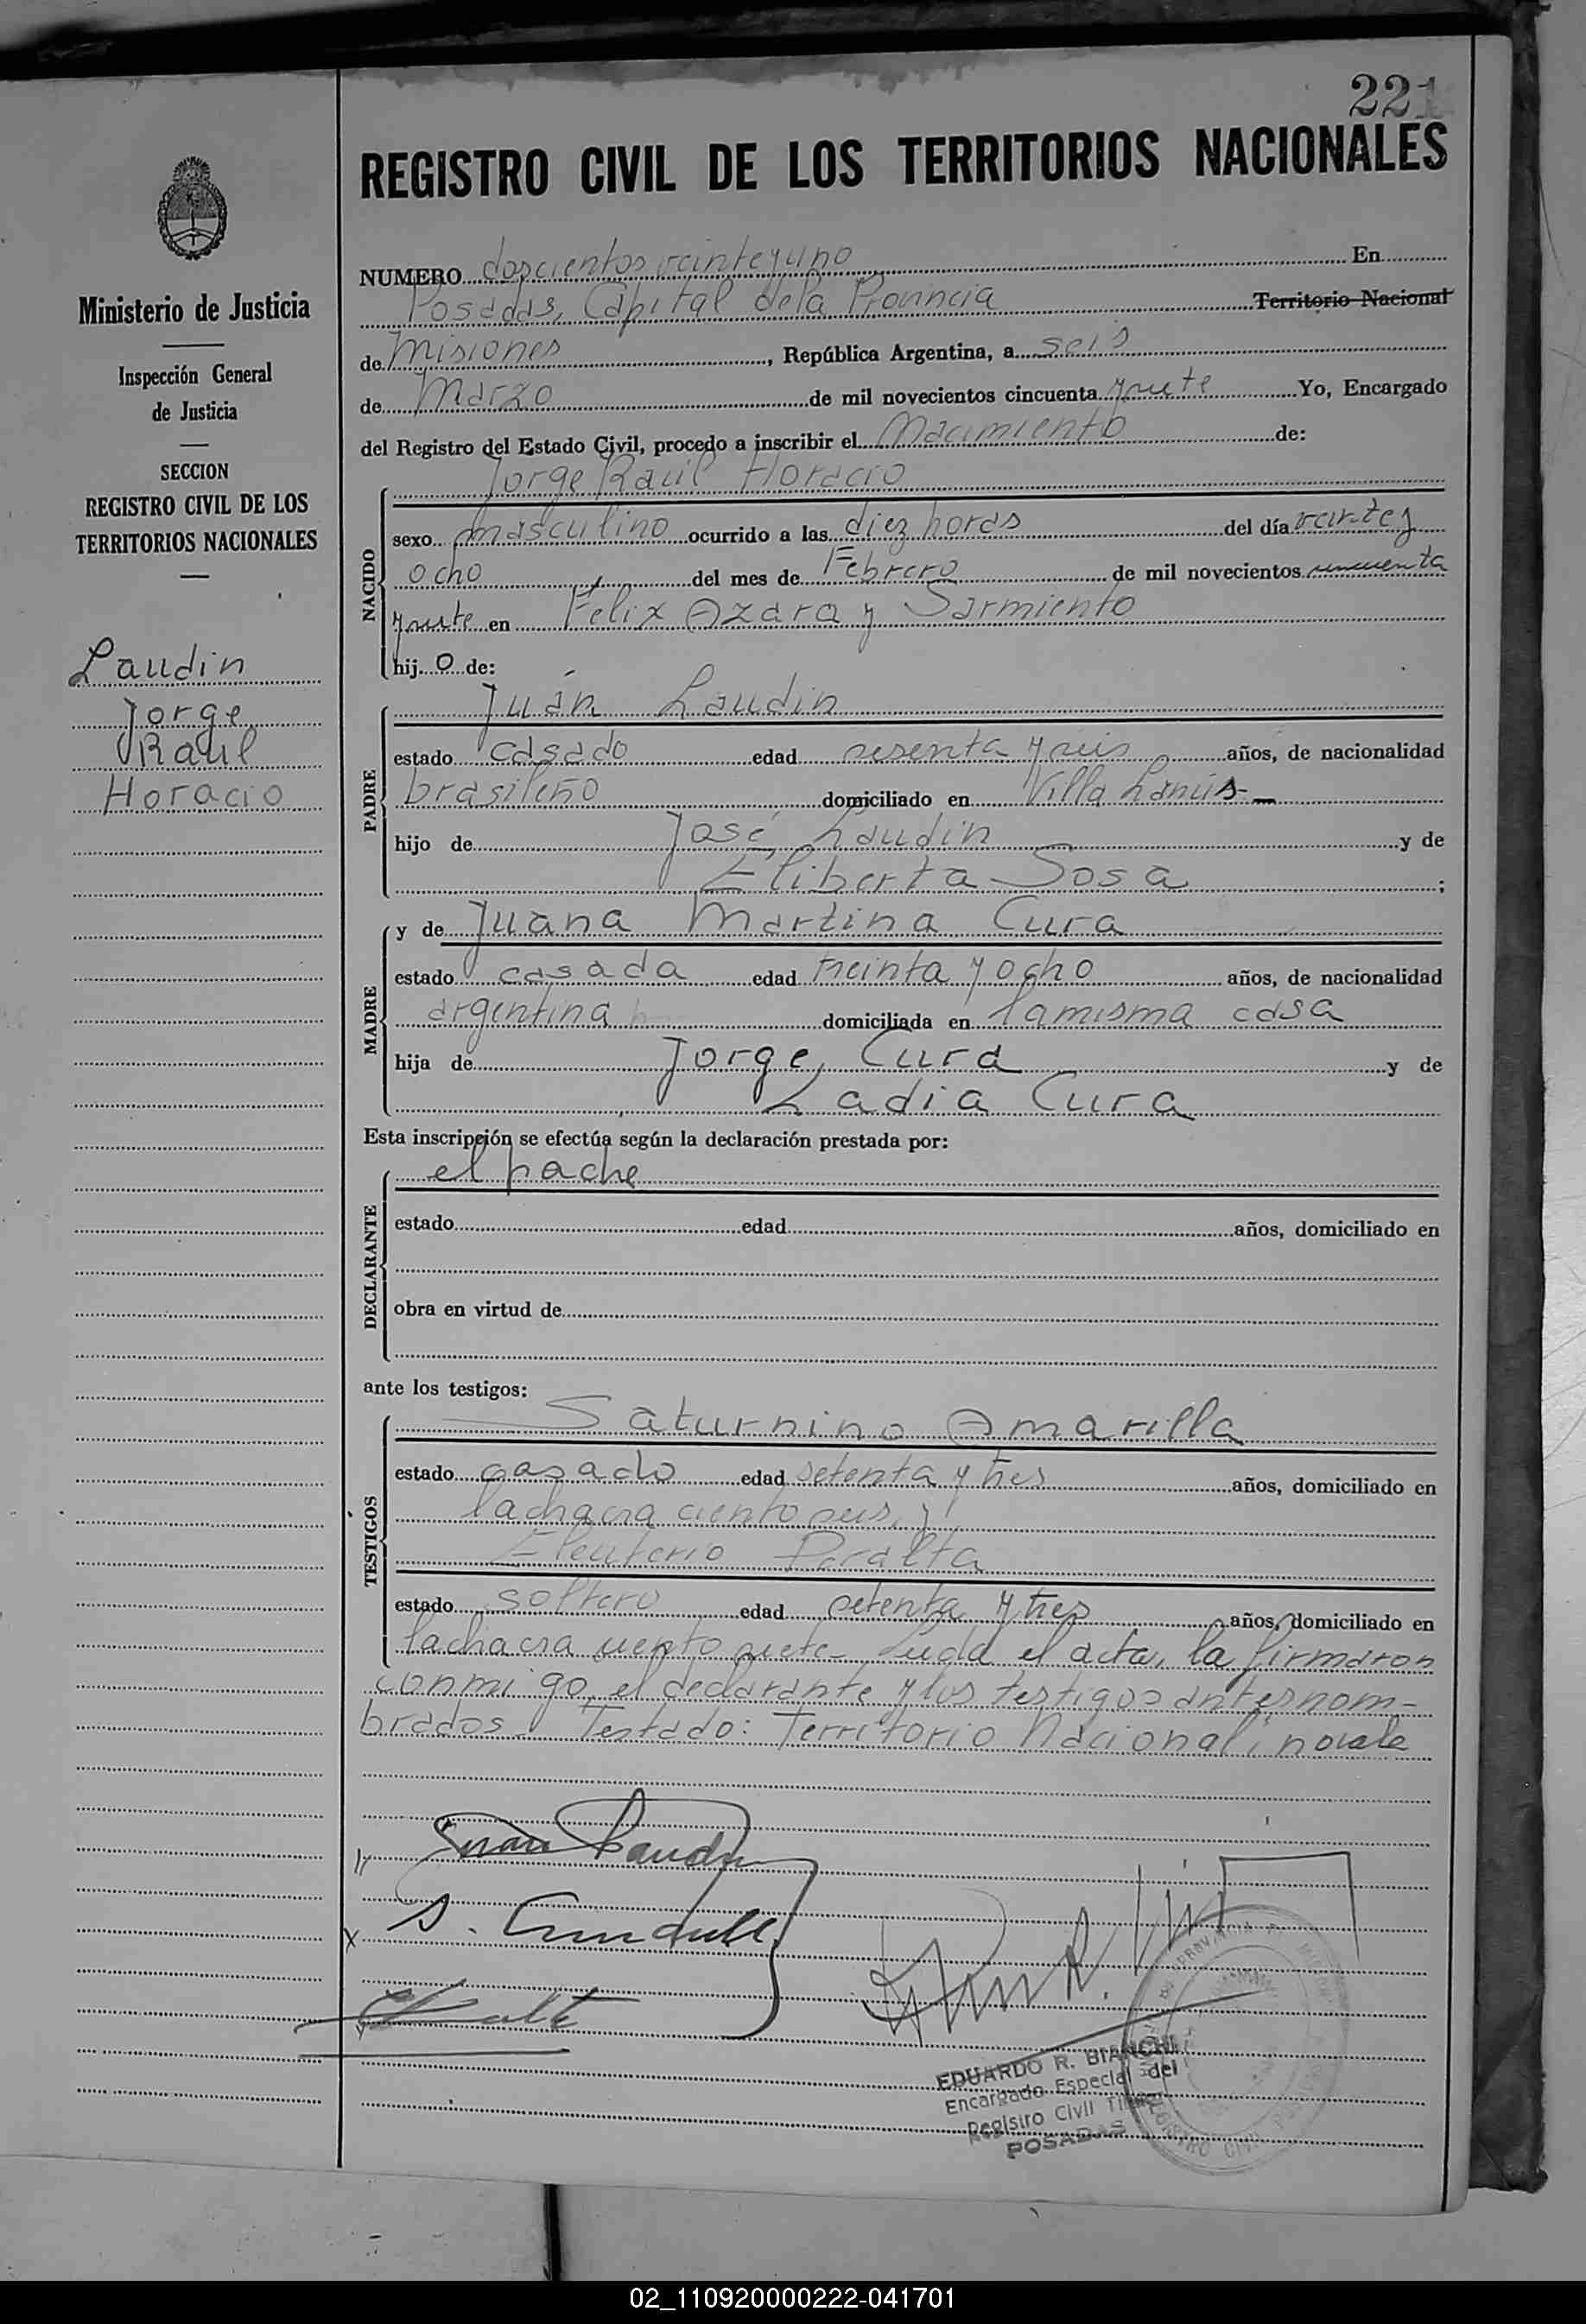 221
REGISTRO CIVIL DE LOS TERRITORIOS NACIONALES
Ministerio de Justicia
Inspección General
de Justicia
SECCION
REGISTRO CIVIL DE LOS
TERRITORIOS NACIONALES
Laudin
Jorge
Raúl
Horacio
NUMERO doscientos veinteyuno En
Posadas, Capital dela Provincia Territorio Nacional
de Misiones, República Argentina, a seis
de Marzo de mil novecientos cincuenta ysiete Yo, Encargado
del Registro del Estado Civil, procedo a inscribir el Nacimiento de:
NACIDO
Jorge Raúl Horacio
sexo masculino ocurrido a las diez horas del día veintey
ocho del mes de Febrero de mil novecientos cincuenta
ysiete en Félix Azara y Sarmiento
hijo de:
PADRE
Juán Laudin
estado casado edad sesenta y seis años, de nacionalidad
brasileño domiciliado en Villa Lanús-
hijo de José Laudin y de
Eliberta Sosa;
MADRE
y de Juana Martina Cura
estado casada edad treinta y ocho años, de nacionalidad
argentina domiciliada en lamisma casa
hija de Jorge Cura y de
Ladia Cura
Esta inscripción se efectúa según la declaración prestada por:
DECLARANTE
el padre
estado edad años, domiciliado en
obra en virtud de
ante los testigos:
TESTIGOS
Saturnino Amarilla
estado casado edad setenta y tres años, domiciliado en
lachacra ciento seis, y
Eleuterio Peralta
estado soltero edad setenta y tres años, domiciliado en
lachacra ciento siete- Leida el acta, la firmaron
conmigo, el declarante y los testigos antesnom-
brados- Testado: Territorio Nacional; novale
Juan Laudin
EDUARDO R. BIANCHI
Encargado Especial del
Registro Civil
POSADAS
02_110920000222-041701